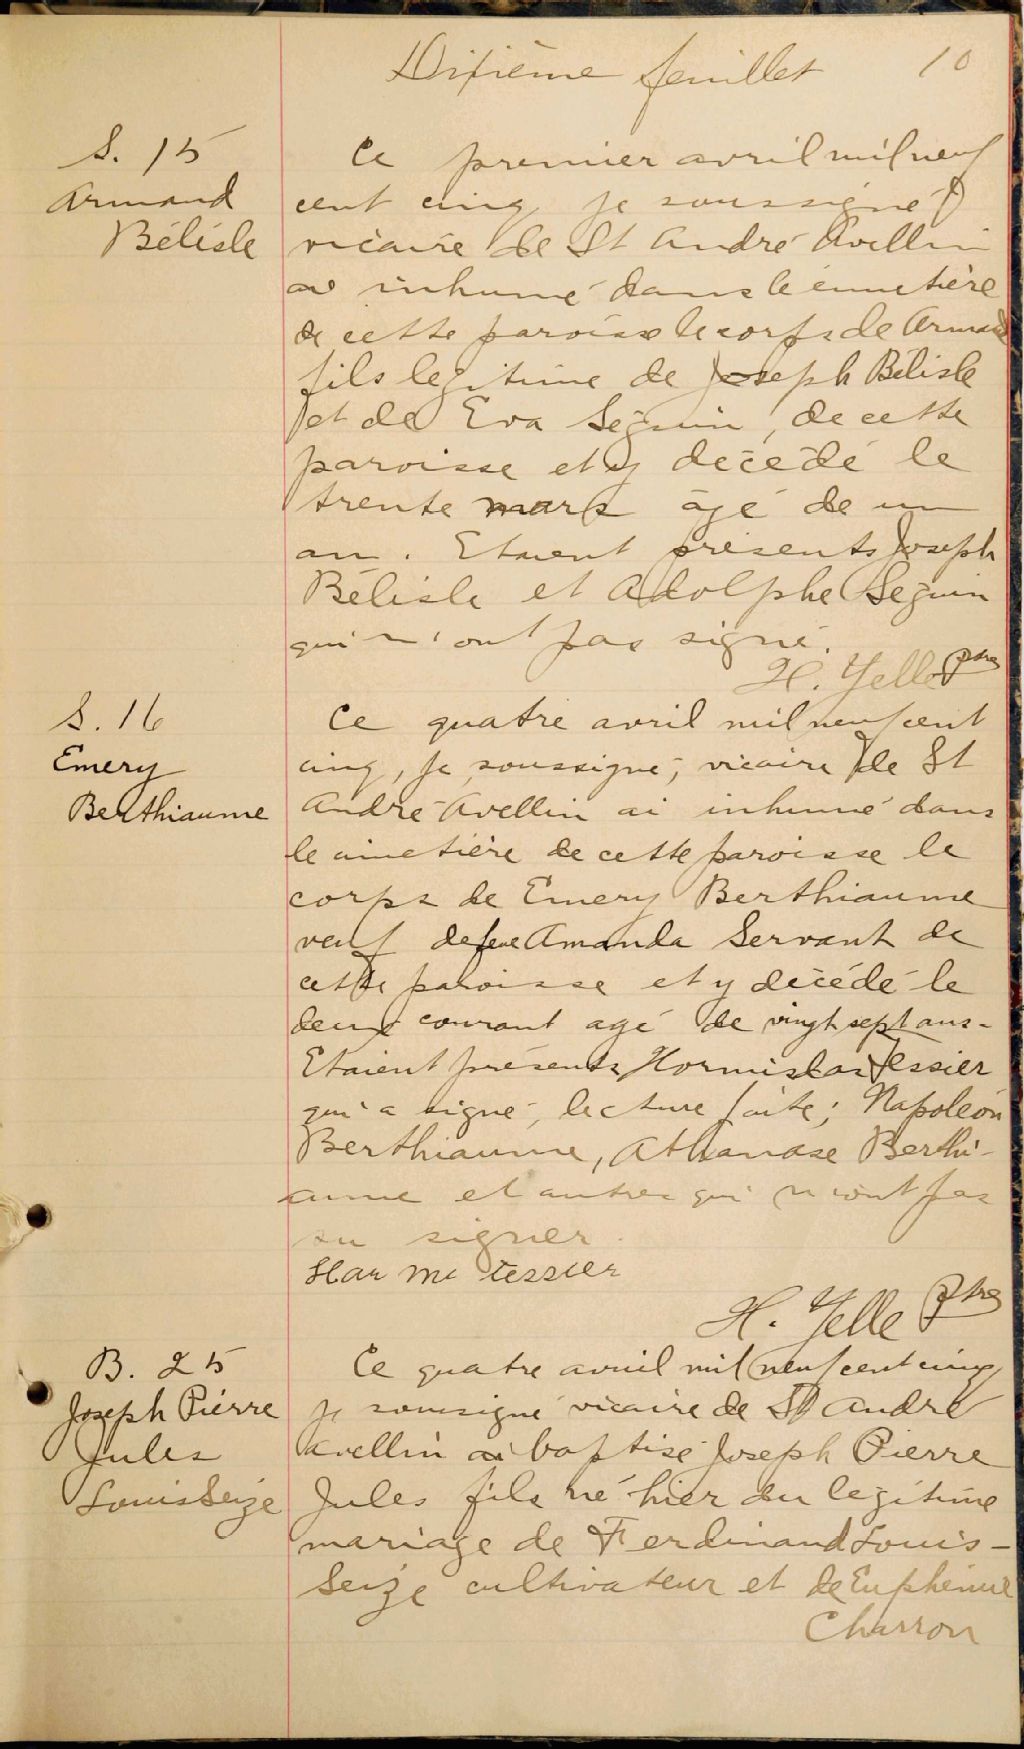 Dixième feuillet 10
S. 15
Armand
Bélisle
Ce premier avril mil neuf
cent cinq je soussigné
vicaire de St André Avellin
ai inhumé dans le cimetière
de cette paroisse le corps de Armand
fils legitime de Joseph Bélisle
et de Eva Séguin, de cette
paroisse et y décédé le
trente mars âgé de un
an. Etaient présents Joseph
Bélisle et Adolphe Séguin
qui n'ont pas signé.
H. Yelle Ptre
S. 16
Emery
Berthiaume
Ce quatre avril mil neuf cent
cinq, je soussigné, vicaire de St
André Avellin ai inhumé dans
le cimetière de cette paroisse le
corps de Emery Berthiaume
veuf de feue Amanda Servant de
cette paroisse et y décédé le
deux courant agé de vingt sept ans-
Etaient présents Hormislas Tessier
qui a signé, lecture faite; Napoléon
Berthiaume, Athanase Berthi-
aume et autres qui n'ont pas
su signer.
Har Tessier
H. Yelle Ptre
B. 25
Joseph Pierre
Jules
Louis Seize
Ce quatre avril mil neuf cent cinq
je soussigné vicaire de St André
Avellin ai baptisé Joseph Pierre
Jules fils né hier du légitime
mariage de Ferdinand Louis-
Seize cultivateur et de Euphémie
Charron